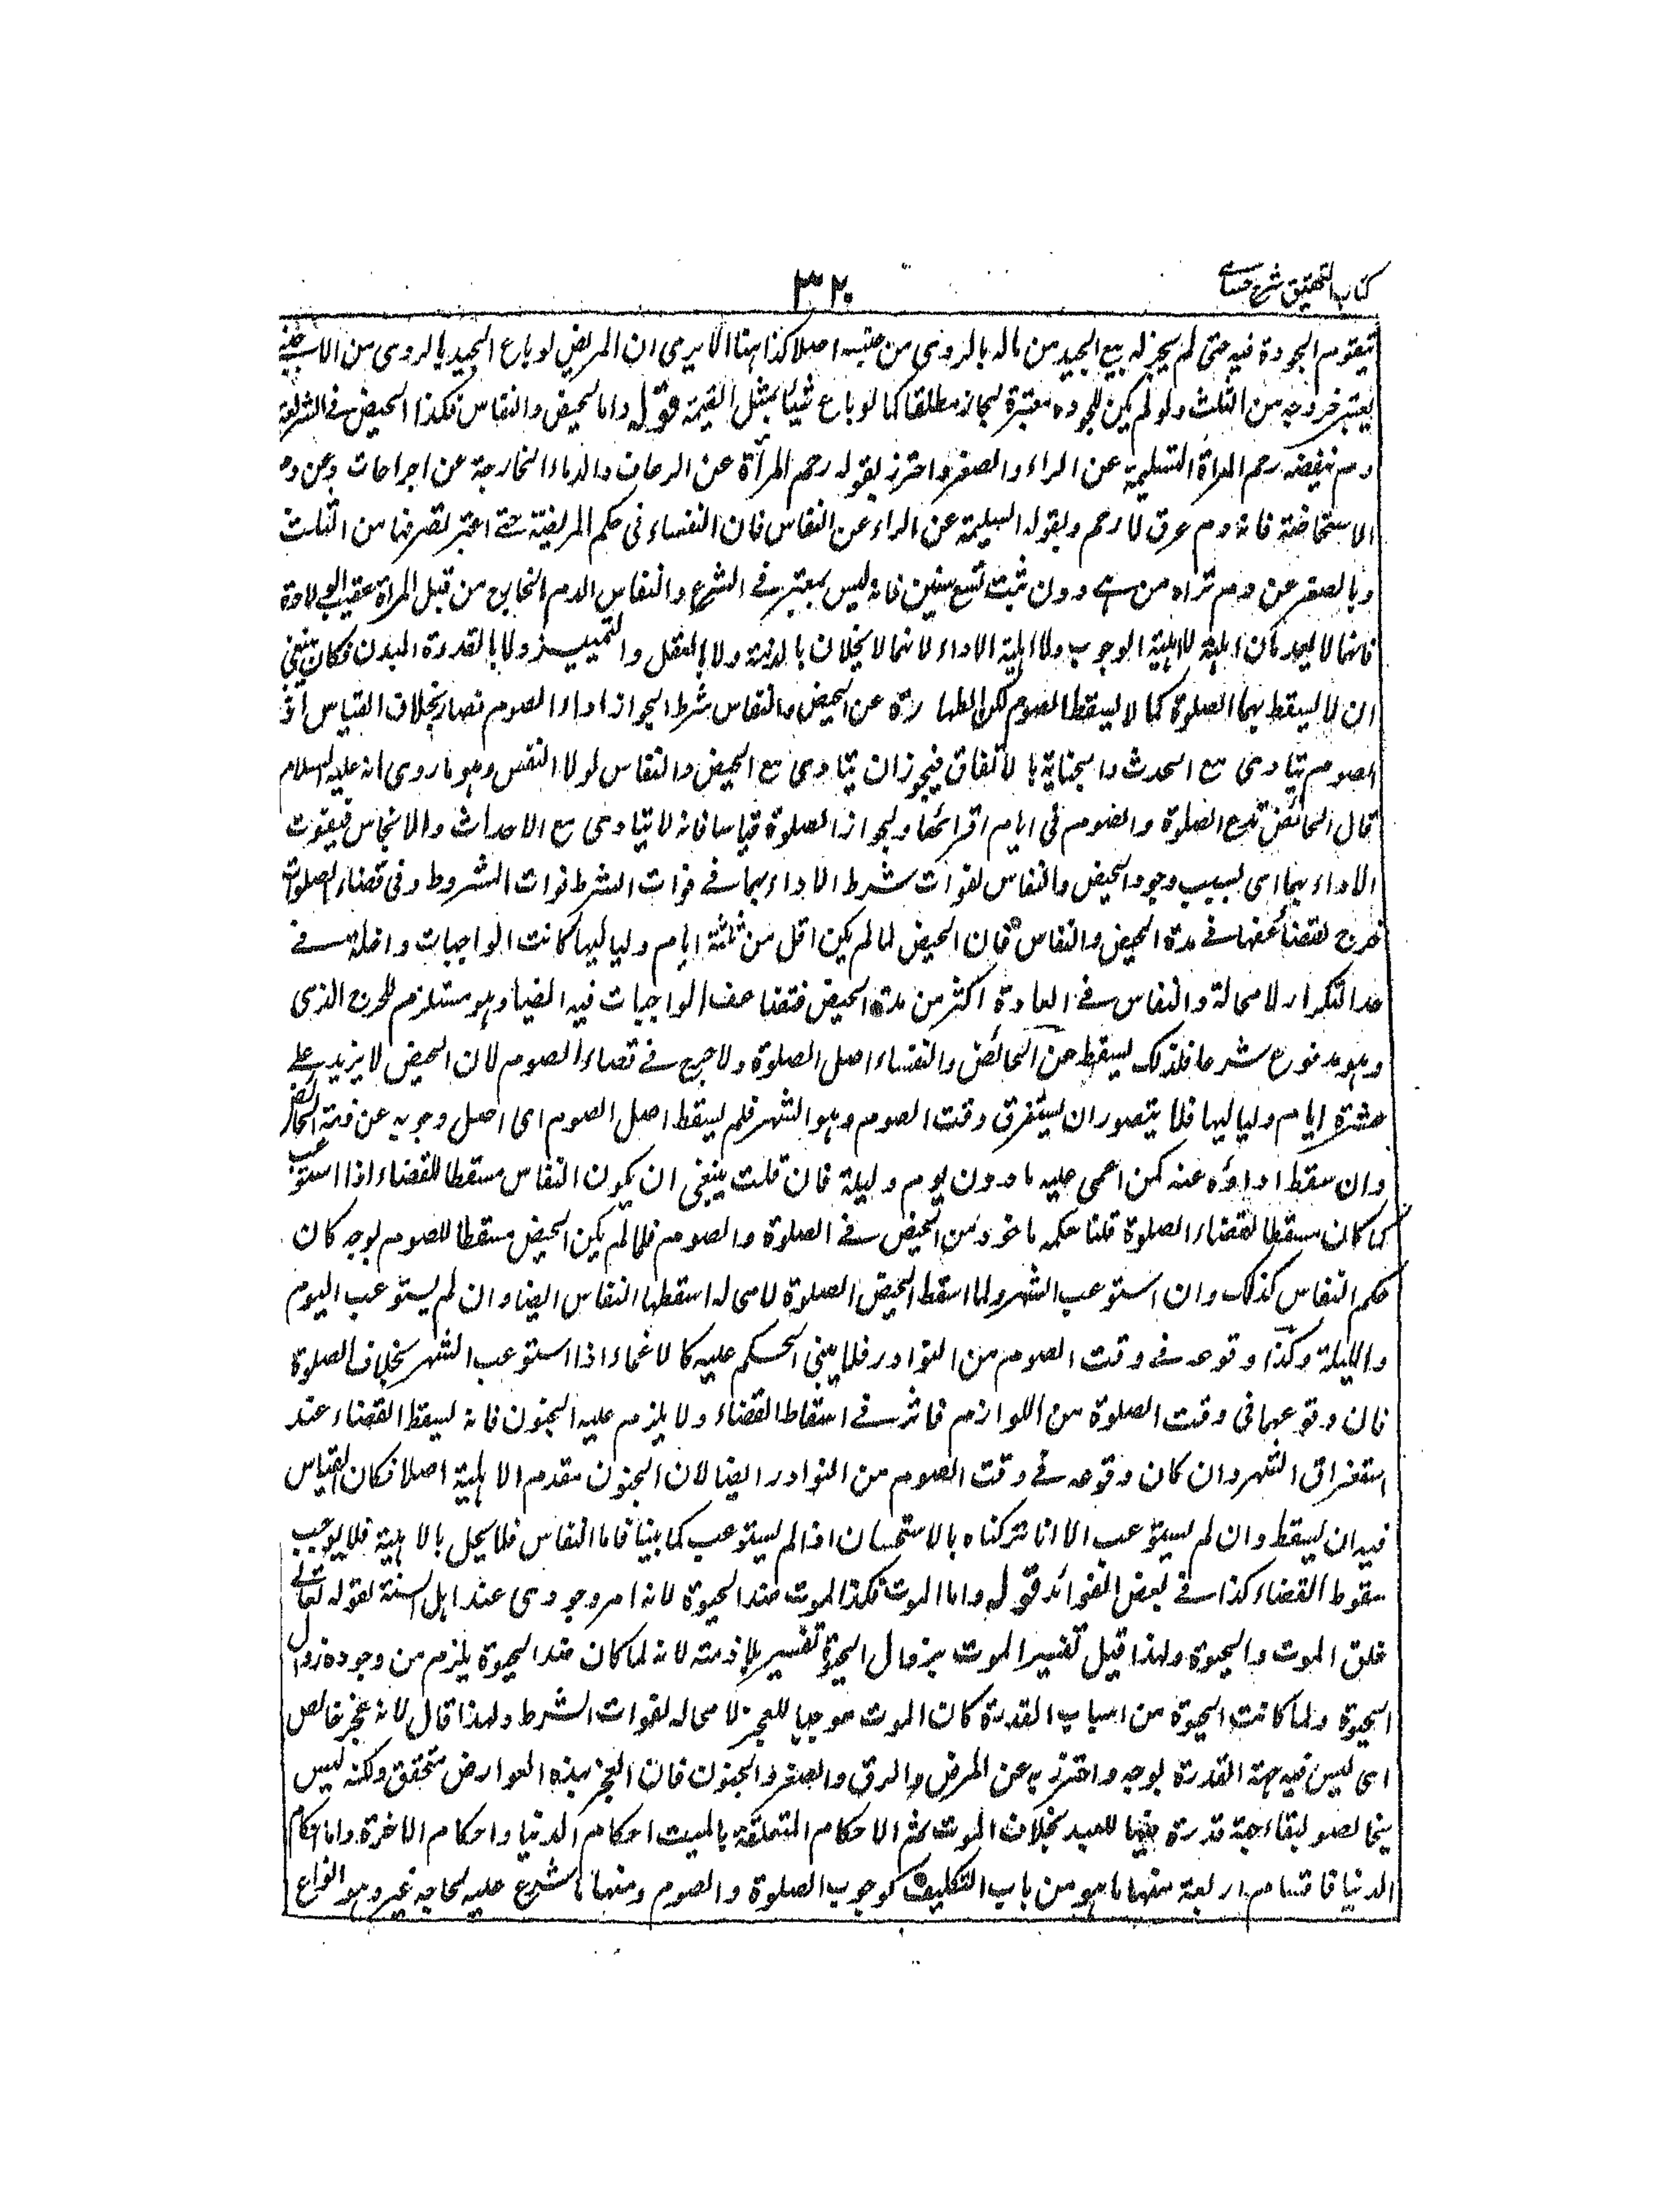 كتاب التحقيق شرح حسامى
٣٢٠
تتقوم الجودة فيه حتى لم يجز له بيع الجيد من ماله بالردى من جنسه اصلا كذا هنا الا يرى ان المريض لو باع الجيد بالردى من الاجنبى
يعتبر خروجه من الثلث ولو لم يكن للجودة معتبرة لجاز مطلقا كما لو باع شيئا بمثل القيمة قوله واما الحيض والنفاس فكذا الحيض فى الشريعة
دم ينفضه رحم المرأة السليمة عن الداء والصغر واحترز بقوله رحم المرأة عن الرعاف والدماء الخارجة عن الجراحات وعن دم
الاستحاضة فانه دم عرق لا رحم وبقوله السليمة عن الداء عن النفاس فان النفساء فى حكم المريضة حتى اعتبر تصرفها من الثلث
وبالصغر عن دم تراه من هى دون بنت تسع سنين فانه ليس بمعتبر فى الشرع والنفاس الدم الخارج من قبل المرأة عقيب الولادة
فانهما لا يعدمان اهلية لا اهلية الوجوب ولا اهلية الاداء لانهما لا يخلان بالذمة ولا بالعقل والتمييز ولا بالقدرة البدن فكان ينبغى
ان لا يسقط بهما الصلوة كما لا يسقط الصوم لكن الطهارة عن الحيض والنفاس شرط لجواز اداء الصوم نصا بخلاف القياس اذ
الصوم يتادى مع الحدث والجنابة بالاتفاق فيجوز ان يتادى مع الحيض والنفاس لولا النص وهو ما روى انه عليه السلام
قال الحائض تدع الصلوة والصوم فى ايام اقرائها ولجواز الصلوة قياسا فانه لا يتادى مع الاحداث والانجاس فيفوت
الاداء بهما اى بسبب وجود الحيض والنفاس لفوات شرط الاداء بهما فى فوات الشرط فوات المشروط وفى قضاء الصلوات
حرج لتضاعفها فى مدة الحيض والنفاس فان الحيض لما لم يكن اقل من ثلثة ايام ولياليها كانت الواجبات داخلة فى
حد التكرار لا محالة والنفاس فى العادة اكثر من مدة الحيض فتضاعف الواجبات فيه ايضا وهو مستلزم للحرج الذى
وهو مدفوع شرعا فلذلك يسقط عن الحائض والنفساء اصل الصلوة ولا حرج فى قضاء الصوم لان الحيض لا يزيد على
عشرة ايام ولياليها فلا يتصور ان يستغرق وقت الصوم وهو الشهر فلم يسقط اصل الصوم اى اصل وجوبه عن ذمة الحائض
وان سقط اداؤه عنه كمن اغمى عليه ما دون يوم وليلة فان قلت ينبغى ان يكون النفاس مسقطا للقضاء اذا استوعب
كما كان مسقطا لقضاء الصلوة قلنا حكمه ماخوذ من الحيض فى الصلوة والصوم فلما لم يكن الحيض مسقطا للصوم بوجه كان
حكم النفاس كذلك وان استوعب الشهر ولما اسقط الحيض الصلوة لا محاله اسقطها النفاس ايضا وان لم يستوعب اليوم
والليلة وكذا وقوعه فى وقت الصوم من النوادر فلا يبنى الحكم عليه كالاغماء اذا استوعب الشهر بخلاف الصلوة
فان وقوعهما فى وقت الصلوة من اللوازم فاثر فى اسقاط القضاء ولا يلزم عليه الجنون فانه يسقط القضاء عند
استغراق الشهر وان كان وقوعه فى وقت الصوم من النوادر ايضا لان الجنون معدم الاهلية اصلا فكان القياس
فيه ان يسقط وان لم يستوعب الا انا تركناه بالاستحسان اذا لم يستوعب كما بينا فاما النفاس فلا يخل بالاهلية فلا يوجب
سقوط القضاء كذا فى بعض الفوائد قوله واما الموت فكذا الموت ضد الحيوة لانه امر وجودى عند اهل السنة لقوله تعالى
خلق الموت والحيوة ولهذا قيل تفسير الموت بزوال الحيوة تفسير بلازمته لانه لما كان ضد الحيوة يلزم من وجوده زوال
الحيوة ولما كانت الحيوة من اسباب القدرة كان الموت موجبا للعجز لا محاله لفوات الشرط ولهذا قال لانه عجز خالص
اى ليس فيه جهة القدرة بوجه واحترز به عن المرض والرق والصغر والجنون فان العجز بهذه العوارض متحقق ولكنه ليس
بخالص لبقاء جهة قدرة فيها للعبد بخلاف الموت ثم الاحكام المتعلقة بالميت احكام الدنيا واحكام الاخرة واما احكام
الدنيا فاقسام اربعة منها ما هو من باب التكليف كوجوب الصلوة والصوم ومنها ما شرع عليه لحاجة غيره وهو انواع